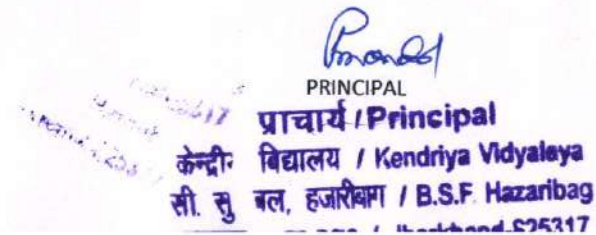 PRINCIPAL
प्राचार्य / Principal
केन्द्री विद्यालय / Kendriya Vidyalaya
सी. सु बल, हजारीबाग / B.S.F. Hazaribag
Jharkhand-825317